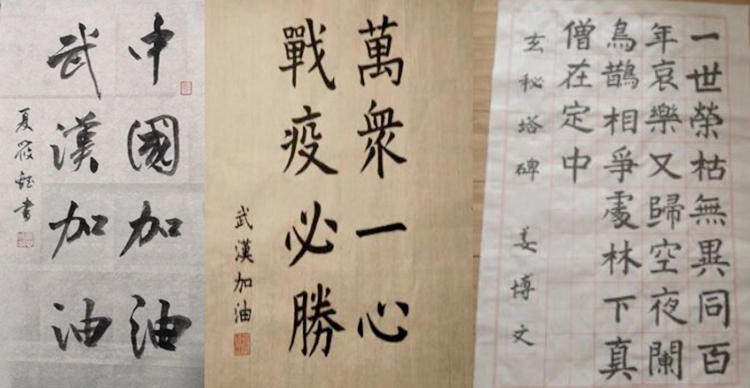 中國加油
武漢加油
夏筱鈺書
萬衆一心
戰疫必勝
武漢加油
一世榮枯無異同百
年哀樂又歸空夜闌
鳥鵲相爭處林下真
僧在定中
玄秘塔碑 姜博文